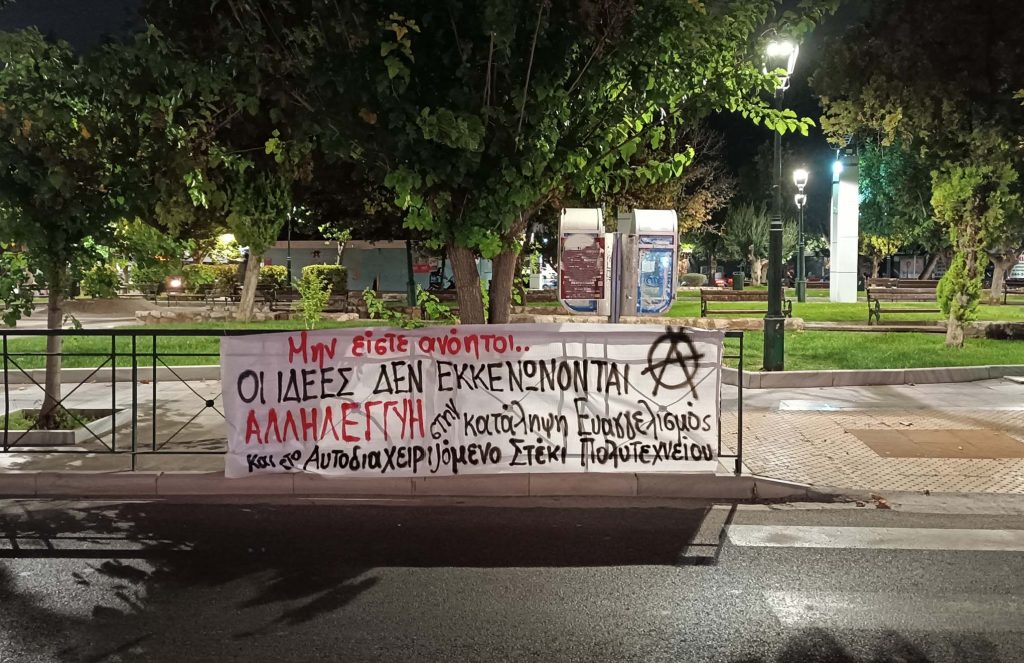 Μην είστε ανόητοι..
ΟΙ ΙΔΕΕΣ ΔΕΝ ΕΚΚΕΝΩΝΟΝΤΑΙ
ΑΛΛΗΛΕΓΓΥΗ στην κατάληψη Ευαγγελισμός
και στο Αυτοδιαχειριζόμενο Στέκι Πολυτεχνείου